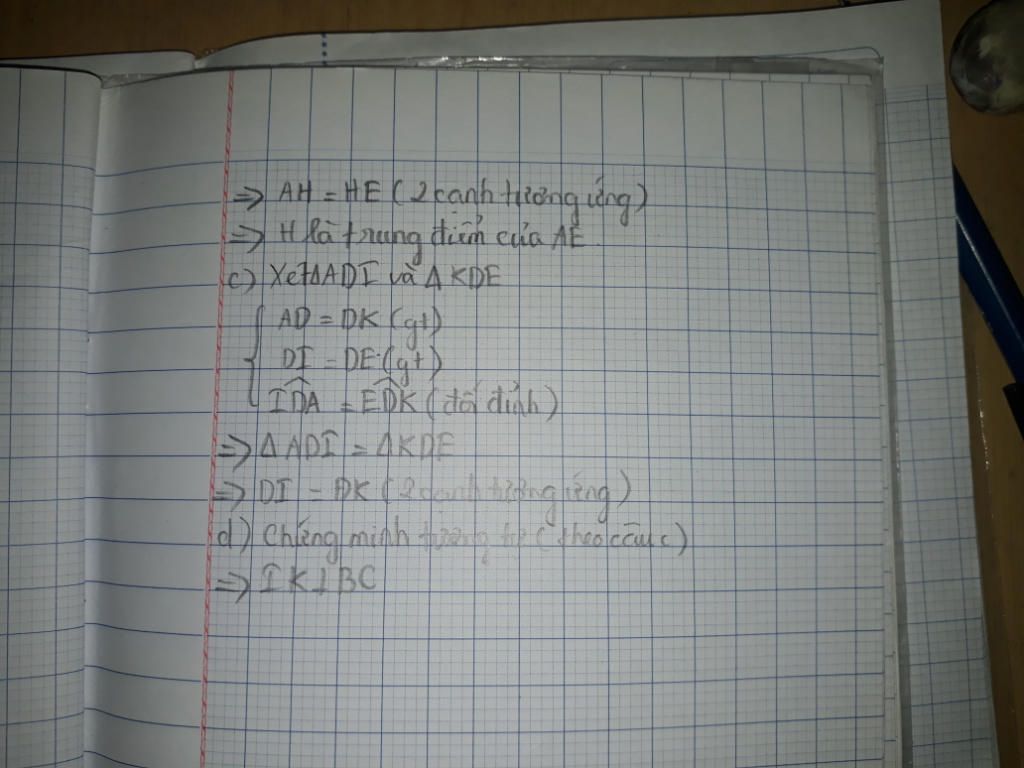 => AH = HE (2 cạnh tương ứng)
=> H là trung điểm của AE
c) Xét ΔADI và Δ KDE
AD = DK (gt)
DI = DE (gt)
IDA = EDK (đối đỉnh)
=> Δ ADI = ΔKDE
=> DI = DK (2 cạnh tương ứng)
d) Chứng minh tương tự (theo câu c)
=> IK⊥BC